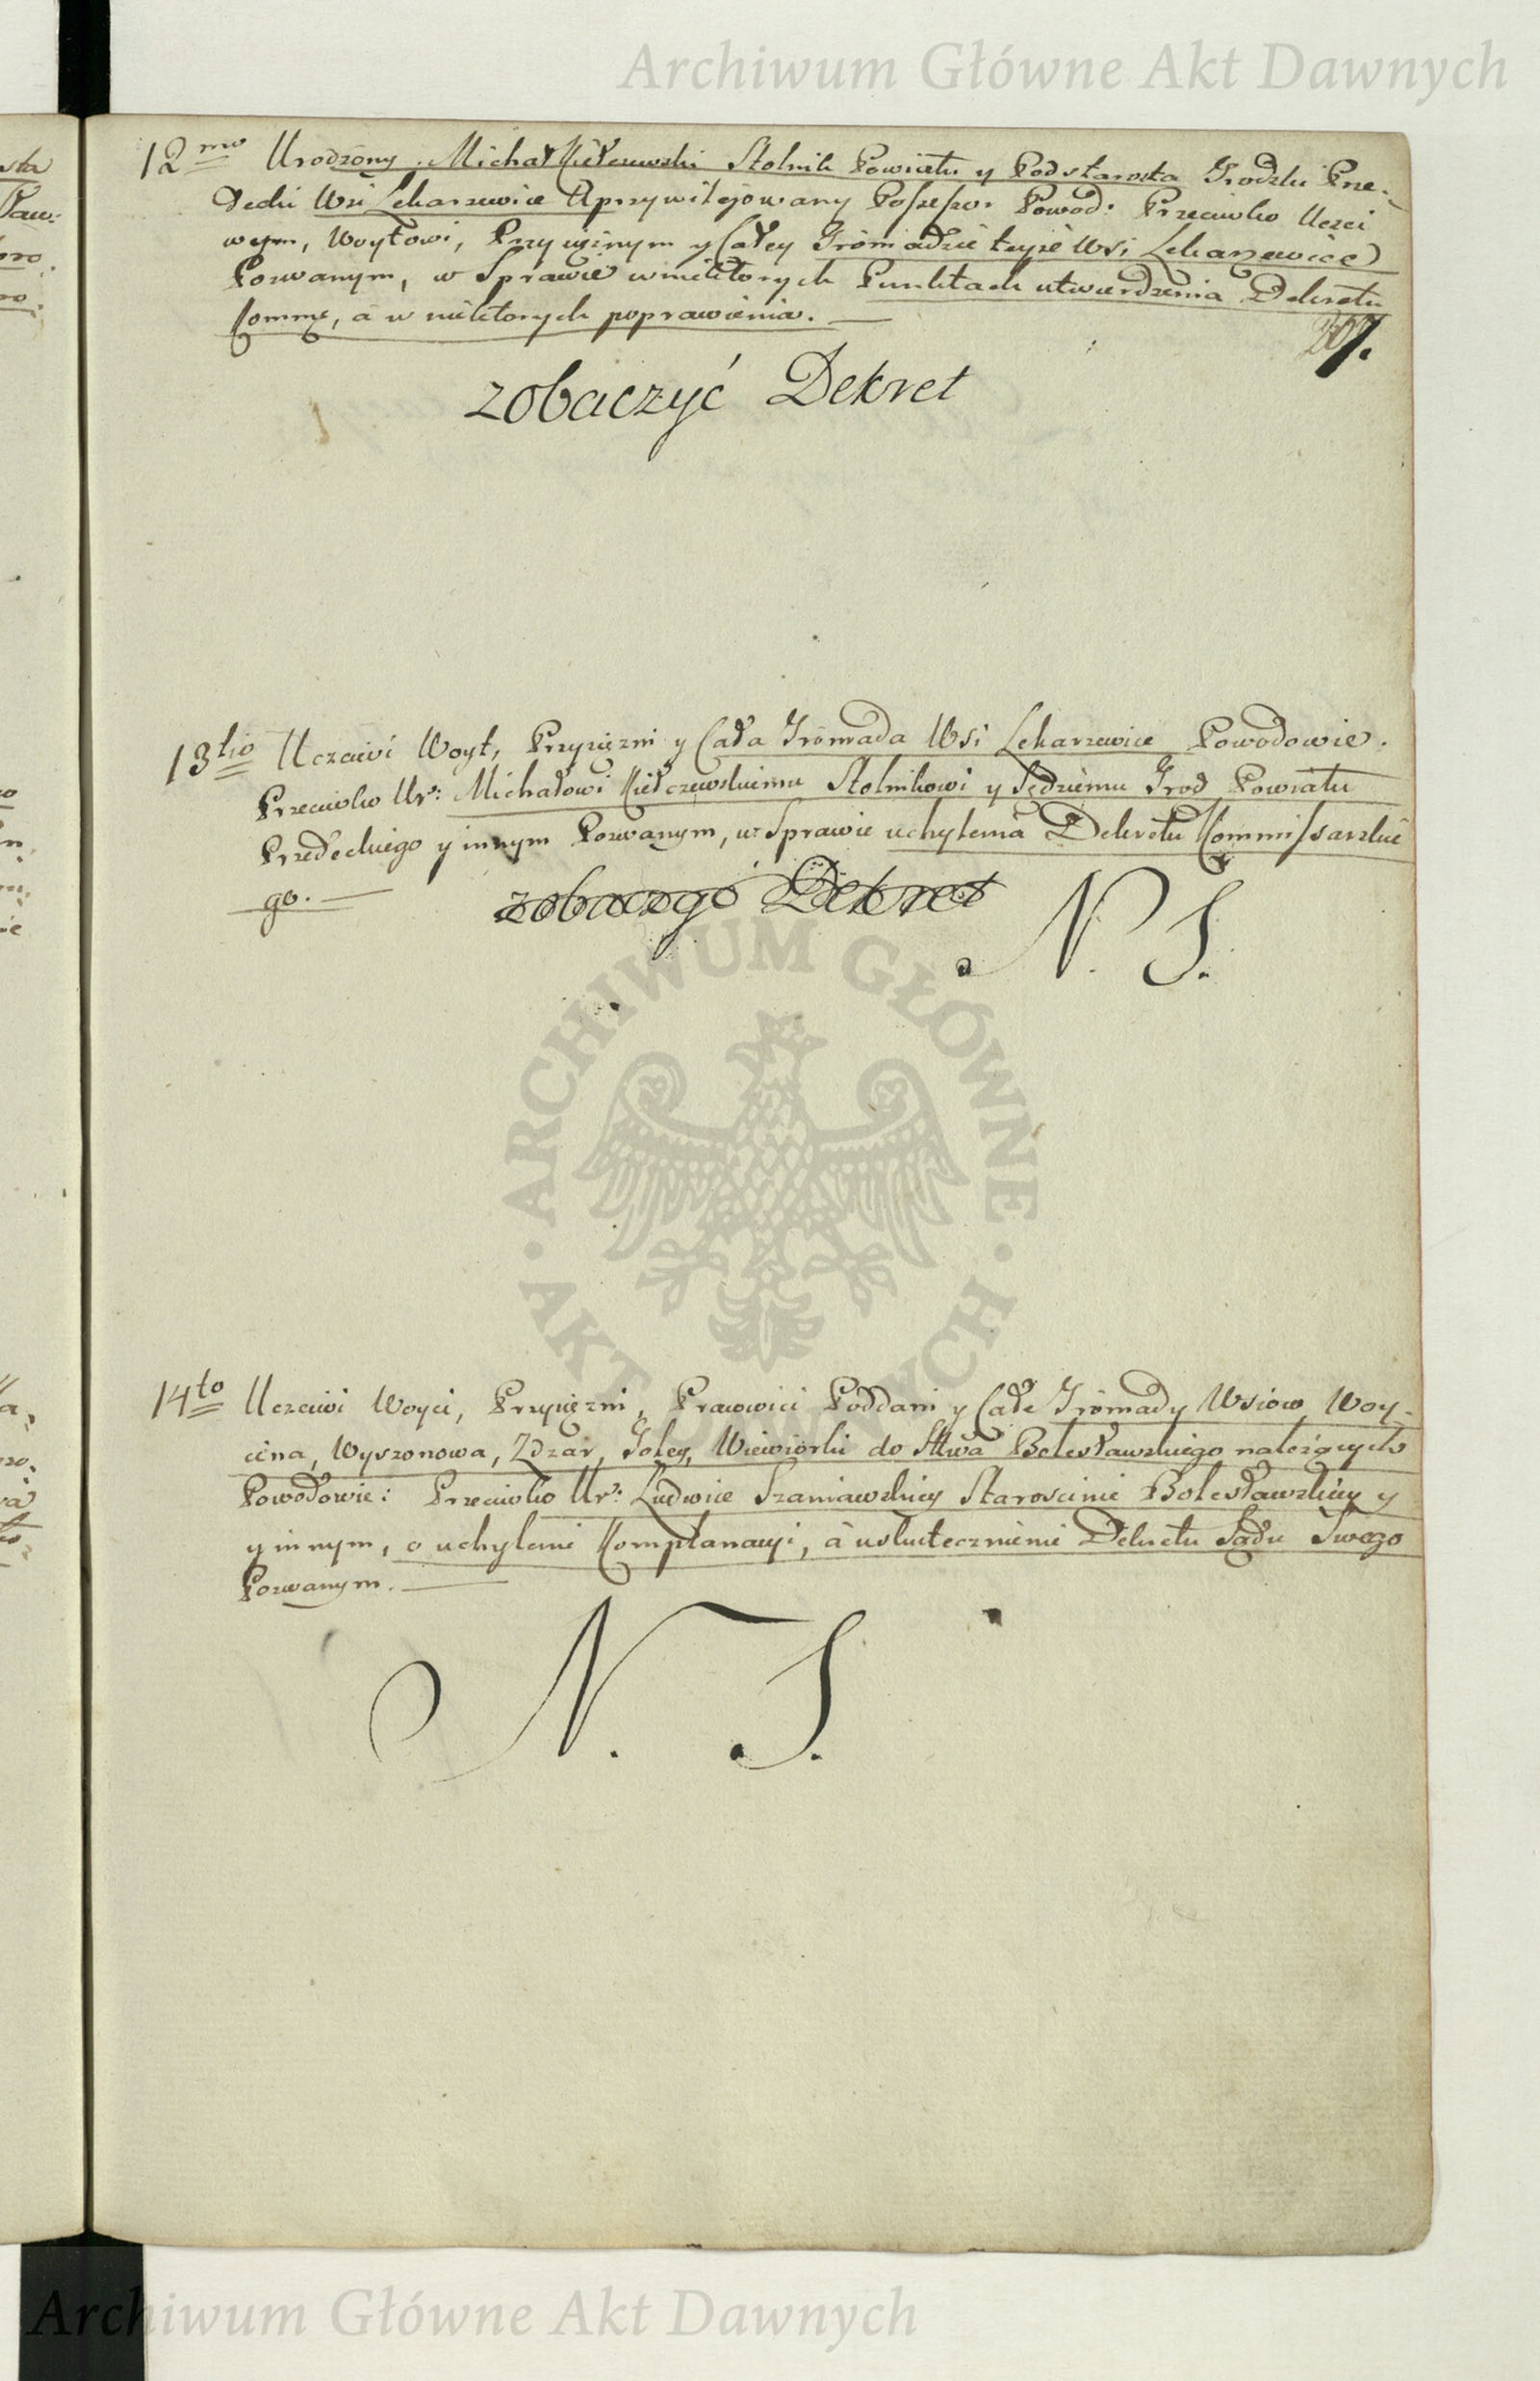 Archiwum Główne Akt Dawnych
12mo Urodzony Michał Kiełczewski Stolnik Powiatu y Podstarosta Grodzki Prze-
decki Wsi Lekarzewice Uprzywilejowany Possessor Powod: Przeciwko Uczci
wym, Woytowi, Przysiężnym y Całey Gromadzie teyże Wsi Lekarzewice
Pozwanym, w Sprawie w niektorych Punktach utwierdzenia Dekretu
Komm, á w niektorych poprawienia.
207.
zobaczyć Dekret
13tio Uczciwi Woyt, Przysiężni y Cała Gromada Wsi Lekarzewice Powodowie.
Przeciwko Ur: Michałowi Kiełczewskiemu Stolnikowi y Sędziemu Grod Powiatu
Przedeckiego y innym Pozwanym, w Sprawie uchylenia Dekretu Kommissarskie
go.
zobaczyć Dekret
N. S.
ARCHIWUM GŁÓWNE AKT DAWNYCH
14to Uczciwi Woyci, Przysiężni, Prawowici Poddani y Całe Gromady Wsiow, Woy-
cina, Wyszonowa, Zdzar, Goley, Wiewiorki do Sttwa Bolesławskiego należących
Powodowie: Przeciwko Ur: Ludwice Szaniawskiey Starościnie Bolesławskiey y
y innym, o uchylenie Komplanacyi, á uskutecznienie Dekretu Sądu Swego
Pozwanym.
N. S.
Archiwum Główne Akt Dawnych